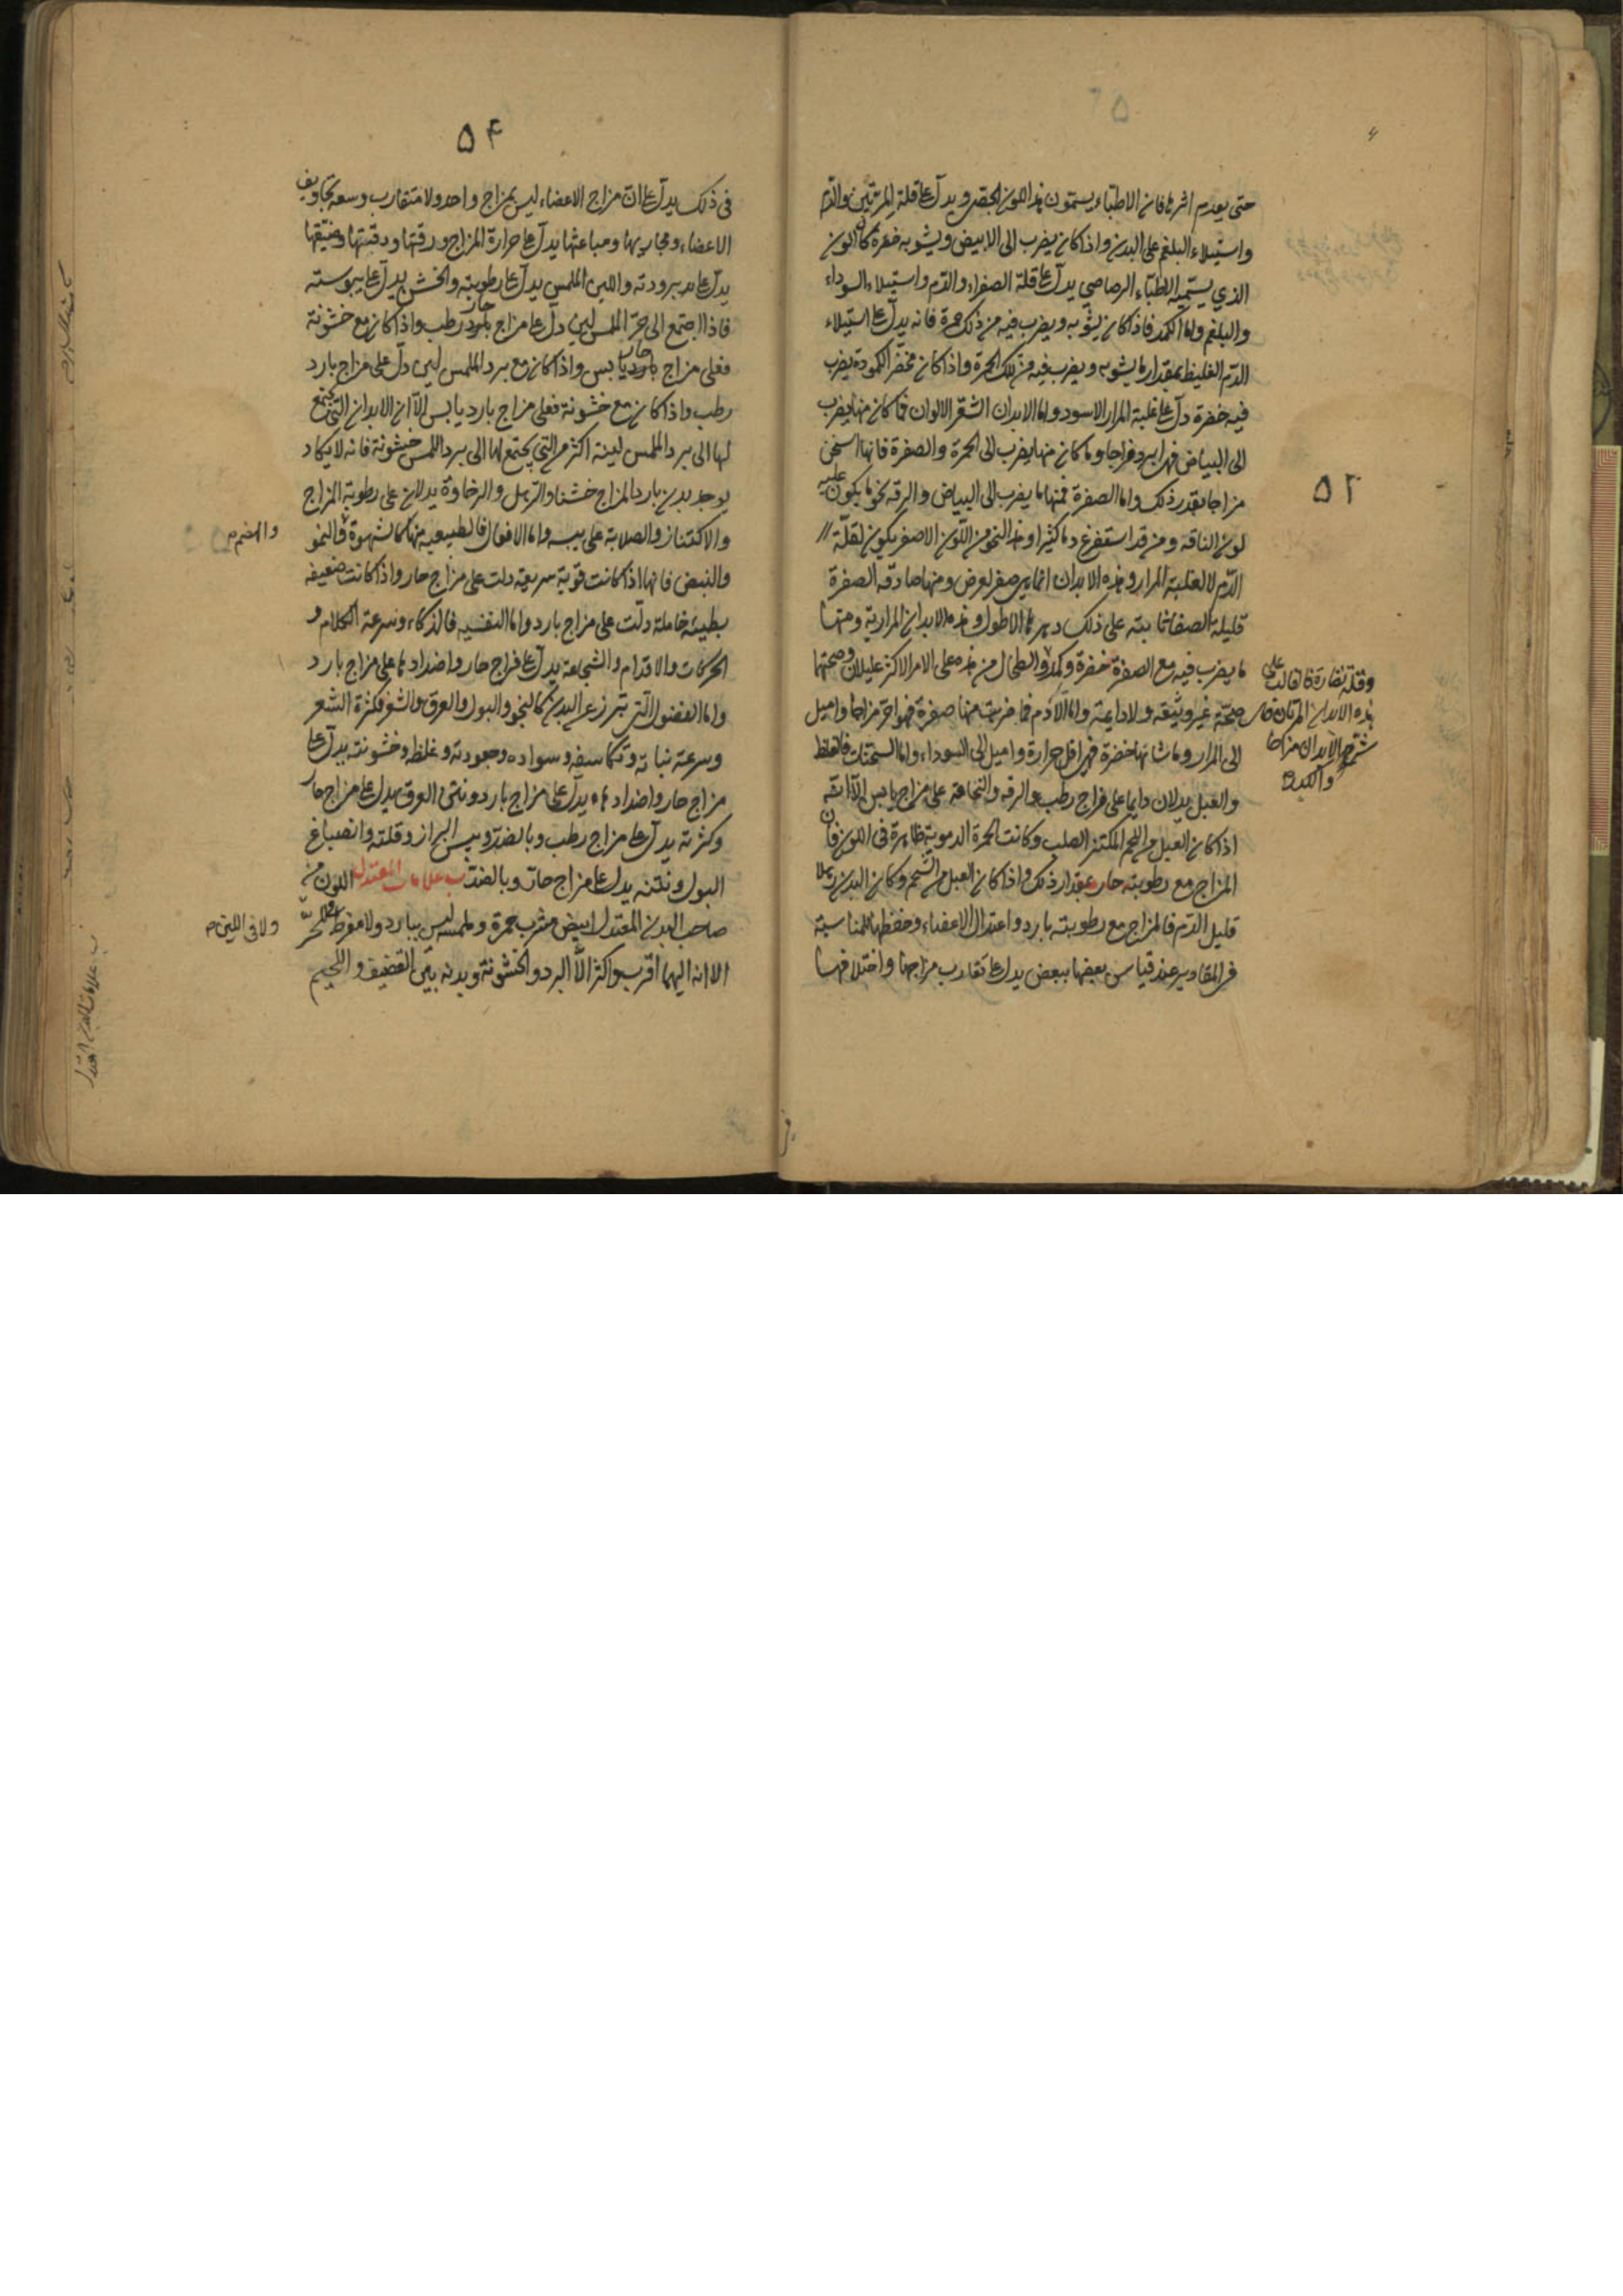 حتى يعدم اشرها فان الاطباء يسمون هذا اللون الجصي ويدل على قلة المرتين والدم
واستيلاء البلغم على البدن واذا كان يضرب الى الابيض ويشوبه خضرة كان اللون
الذي يسميه الاطباء الرصاصي يدل على قلة الصفراء والدم واستيلاء السوداء
والبلغم واما الكمد فاذا كان يشوبه ويضرب فيه من ذلك حمرة فانه يدل على استيلاء
الدم الغليظ بمقدار ما يشوبه ويضرب فيه من تلك الحمرة واذا كان مخضر الكمودة يضرب
فيه خضرة دل على غلبة المرار الاسود واما الابدان الشقر الالوان فما كان منها يضرب
الى البياض فهي ابرد مزاجا وما كان منها يضرب الى الحمرة والصفرة فانها اسخن
مزاجا بقدر ذلك واما الصفرة فمنها ما يضرب الى البياض والرقة نحو ما يكون عليه
لون الناقه ومن قد استفرغ دما كثيرا وهذا النحو من اللون الاصفر يكون لقلة
الدم لا لغلبة المرار وهذه الابدان انما يصفر لعرض ومنها صادقة الصفرة
قليلة الصفا ثابتة على ذلك دهرها الاطول وهذه الابدان المرارية ومنها
ما يضرب فيه مع الصفرة خضرة وكمدة والطحال من هذه على الامر الاكثر عليلان وصحتها
صحة غير وثيقة ولا داعية واما الادم فما ضربت منها صفرة فهو احر مزاجا واميل
الى المرار وما شابتها خضرة فهي اقل حرارة واميل الى السوداء واما السحنات فالغلظ
والعبل يدلان دايما على مزاج رطب والرقة والنحافة على مزاج يابس الا انه
اذا كان العبل من اللحم المكتنز الصلب وكانت الحمرة الدموية ظاهرة في اللون فان
المزاج مع رطوبته حار بمقدار ذلك واذا كان العبل من الشحم وكان البدن رهلا
قليل الدم فالمزاج مع رطوبته بارد واعتدال الاعضاء وحفظها للمناسبة
في المقادير عند قياس بعضها ببعض يدل على تقارب مزاجها واختلافها
وقلة نضارة
هذه الابدان
شقر الابدان مزاجا
والكبد
۵۲
۵۴
في ذلك يدل على ان مزاج الاعضاء ليس بمزاج واحد ولا متقارب وسعة تجاويف
الاعضاء ومجاريها ومباعثها يدل على حرارة المزاج ورقتها ودقتها وضيقها
يدل على برودته واللين الملمس يدل على رطوبته والخشن يدل على يبوسته
فاذا اجتمع الى حر الملمس لين دل على مزاج حار رطب واذا كان مع خشونة
فعلى مزاج حار يابس واذا كان مع برد الملمس لين دل على مزاج بارد
رطب واذا كان مع خشونة فعلى مزاج بارد يابس الا ان الابدان التي تجتمع
لها الى برد الملمس لينة اكثر من التي يجتمع لها الى برد اللمس خشونة فانه لا يكاد
يوجد بدن بارد المزاج خشنا والترهل والرخاوة يدلان على رطوبة المزاج
والاكتناز والصلابة على يبسه واما الافعال فالطبيعية منها كالشهوة والنمو
والنبض فانها اذا كانت قوية سريعة دلت على مزاج حار واذا كانت ضعيفة
بطيئة خاملة دلت على مزاج بارد واما النفسية فالذكاء وسرعة الكلام و
الحركات والاقدام والشجاعة يدل على مزاج حار واضدادها على مزاج بارد
واما الفضول التي تبرز عن البدن كالنجو والبول والعرق والشعر فكثرة الشعر
وسرعة نباته وتكاسفه وسواده وجعودته وغلظه وخشونته يدل على
مزاج حار واضداد هذه يدل على مزاج بارد ونتن العرق يدل على مزاج حار
وكثرته يدل على مزاج رطب وبالضد ويبس البراز وقلته وانصباغ
البول ونتنه يدل على مزاج حار وبالضد ب علامات المعتدل اللون من
صاحب البدن المعتدل ابيض مشرب حمرة وملمسه ليس ببارد ولا مفرط الحر
الا انه اليهما اقرب واكثر الا البرد والخشونة وبدنه بين القضيف واللحيم
والهضم م
ولا في اللين م